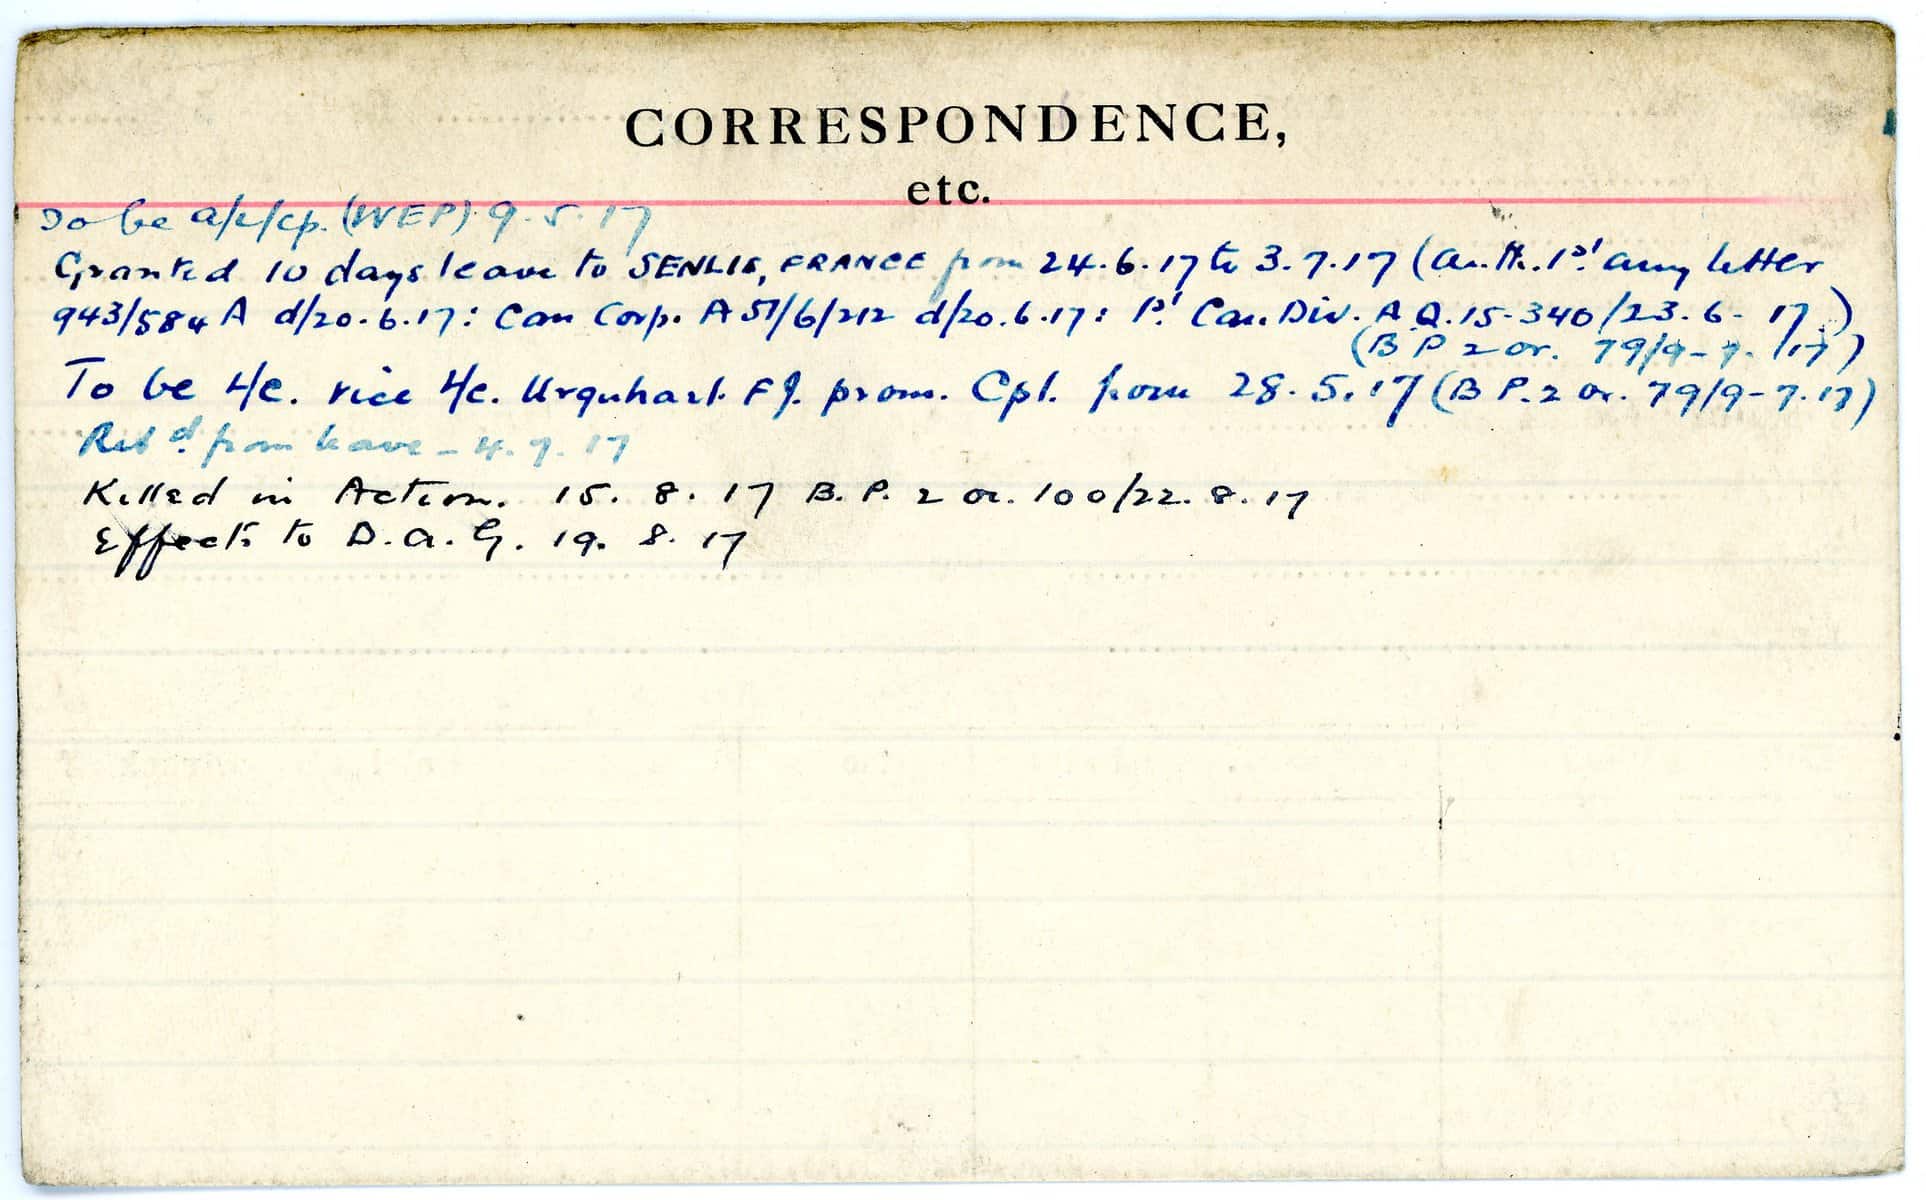 CORRESPONDENCE,
etc.
To be a/L/Cp. (WEP) 9.5.17
Granted 10 days leave to SENLIS, FRANCE from 24.6.17 to 3.7.17 (Auth. 1st Army letter
943/584 A d/20.6.17: Can Corp. A 51/6/212 d/20.6.17: 1st Can. Div. A.Q. 15-340/23-6-17.)
(B P 2 or. 79/9-7-/17)
To be L/C. vice L/C. Urquhart FJ. prom. Cpl. from 28.5.17 (B P. 2 or. 79/9-7.17)
Ret'd from leave - 4.7.17
Killed in Action. 15.8.17 B.P. 2 or. 100/22.8.17
Effects to D.A.G. 19.8.17